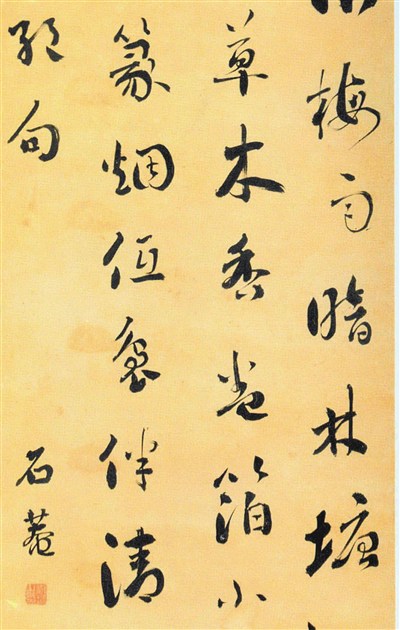 梅雨暗林塘
草木香卷箔小
篆烟低裊伴清
句
石菴